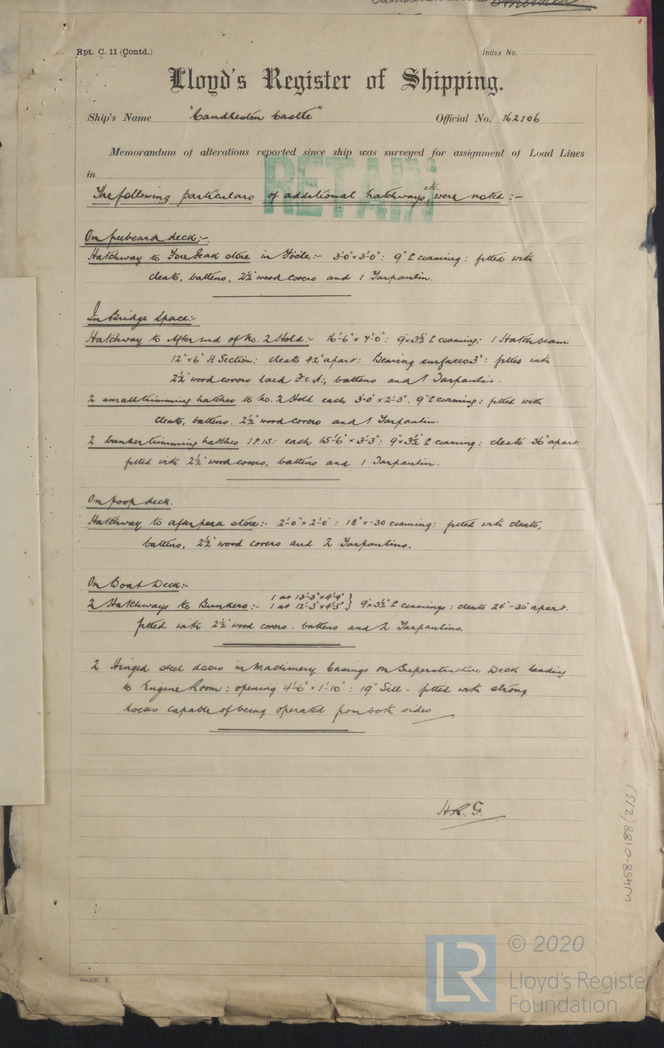 Rpt. C. 11 (Contd.)
Index No.
Lloyd's Register of Shipping.
Ship's Name "Candleston Castle" Official No. 162106
Memorandum of alterations reported since ship was surveyed for assignment of Load Lines
in
RETAIN
The following particulars of additional hatchways etc were noted :-
On freeboard deck:-
Hatchway to Fore Peak store in Fo'cle:- 3'-0" × 3'-0" : 9" L coaming : fitted with
cleats, battens, 2½" wood covers and 1 Tarpaulin.
In Bridge Space:-
Hatchway to After end of No. 2 Hold:- 16'-6" × 4'-0" : 9 × 3½ L coaming : 1 Hatch beam
12" × 6" H Section : cleats 42" apart : Bearing surface 3" : fitted with
2½" wood covers laid F & A, battens and 1 Tarpaulin.
2 small trimming hatches to No. 2 Hold each 3'-0" × 2'-3". 9" L coaming : fitted with
cleats, battens, 2½" wood covers and 1 Tarpaulin.
2 bunker trimming hatches 1P.1S: each 15'-6" × 3'-3" : 9 × 3½ L coaming : cleats 36" apart
fitted with 2½" wood covers, battens and 1 Tarpaulin.
On poop deck.
Hatchway to after peak store:- 2'-0" × 2'-0" : 18" × .30 coaming : fitted with cleats,
battens, 2½" wood covers and 2 Tarpaulins.
On Boat Deck:-
2 Hatchways to Bunkers:- 1 at 13'-3" × 4'-9" 1 at 12'-3" × 4'-3" } 9" × 3½" L coamings : cleats 24"-30" apart.
fitted with 2½" wood covers. battens and 2 Tarpaulins.
2 Hinged steel doors in Machinery Casings on Superstructure Deck leading
to Engine Room : opening 4'-6" × 1'-10" : 19" Sill. fitted with strong
locks capable of being operated from both sides
W458-0188 (2/5)
© 2020
LR
Lloyd's Register
Foundation